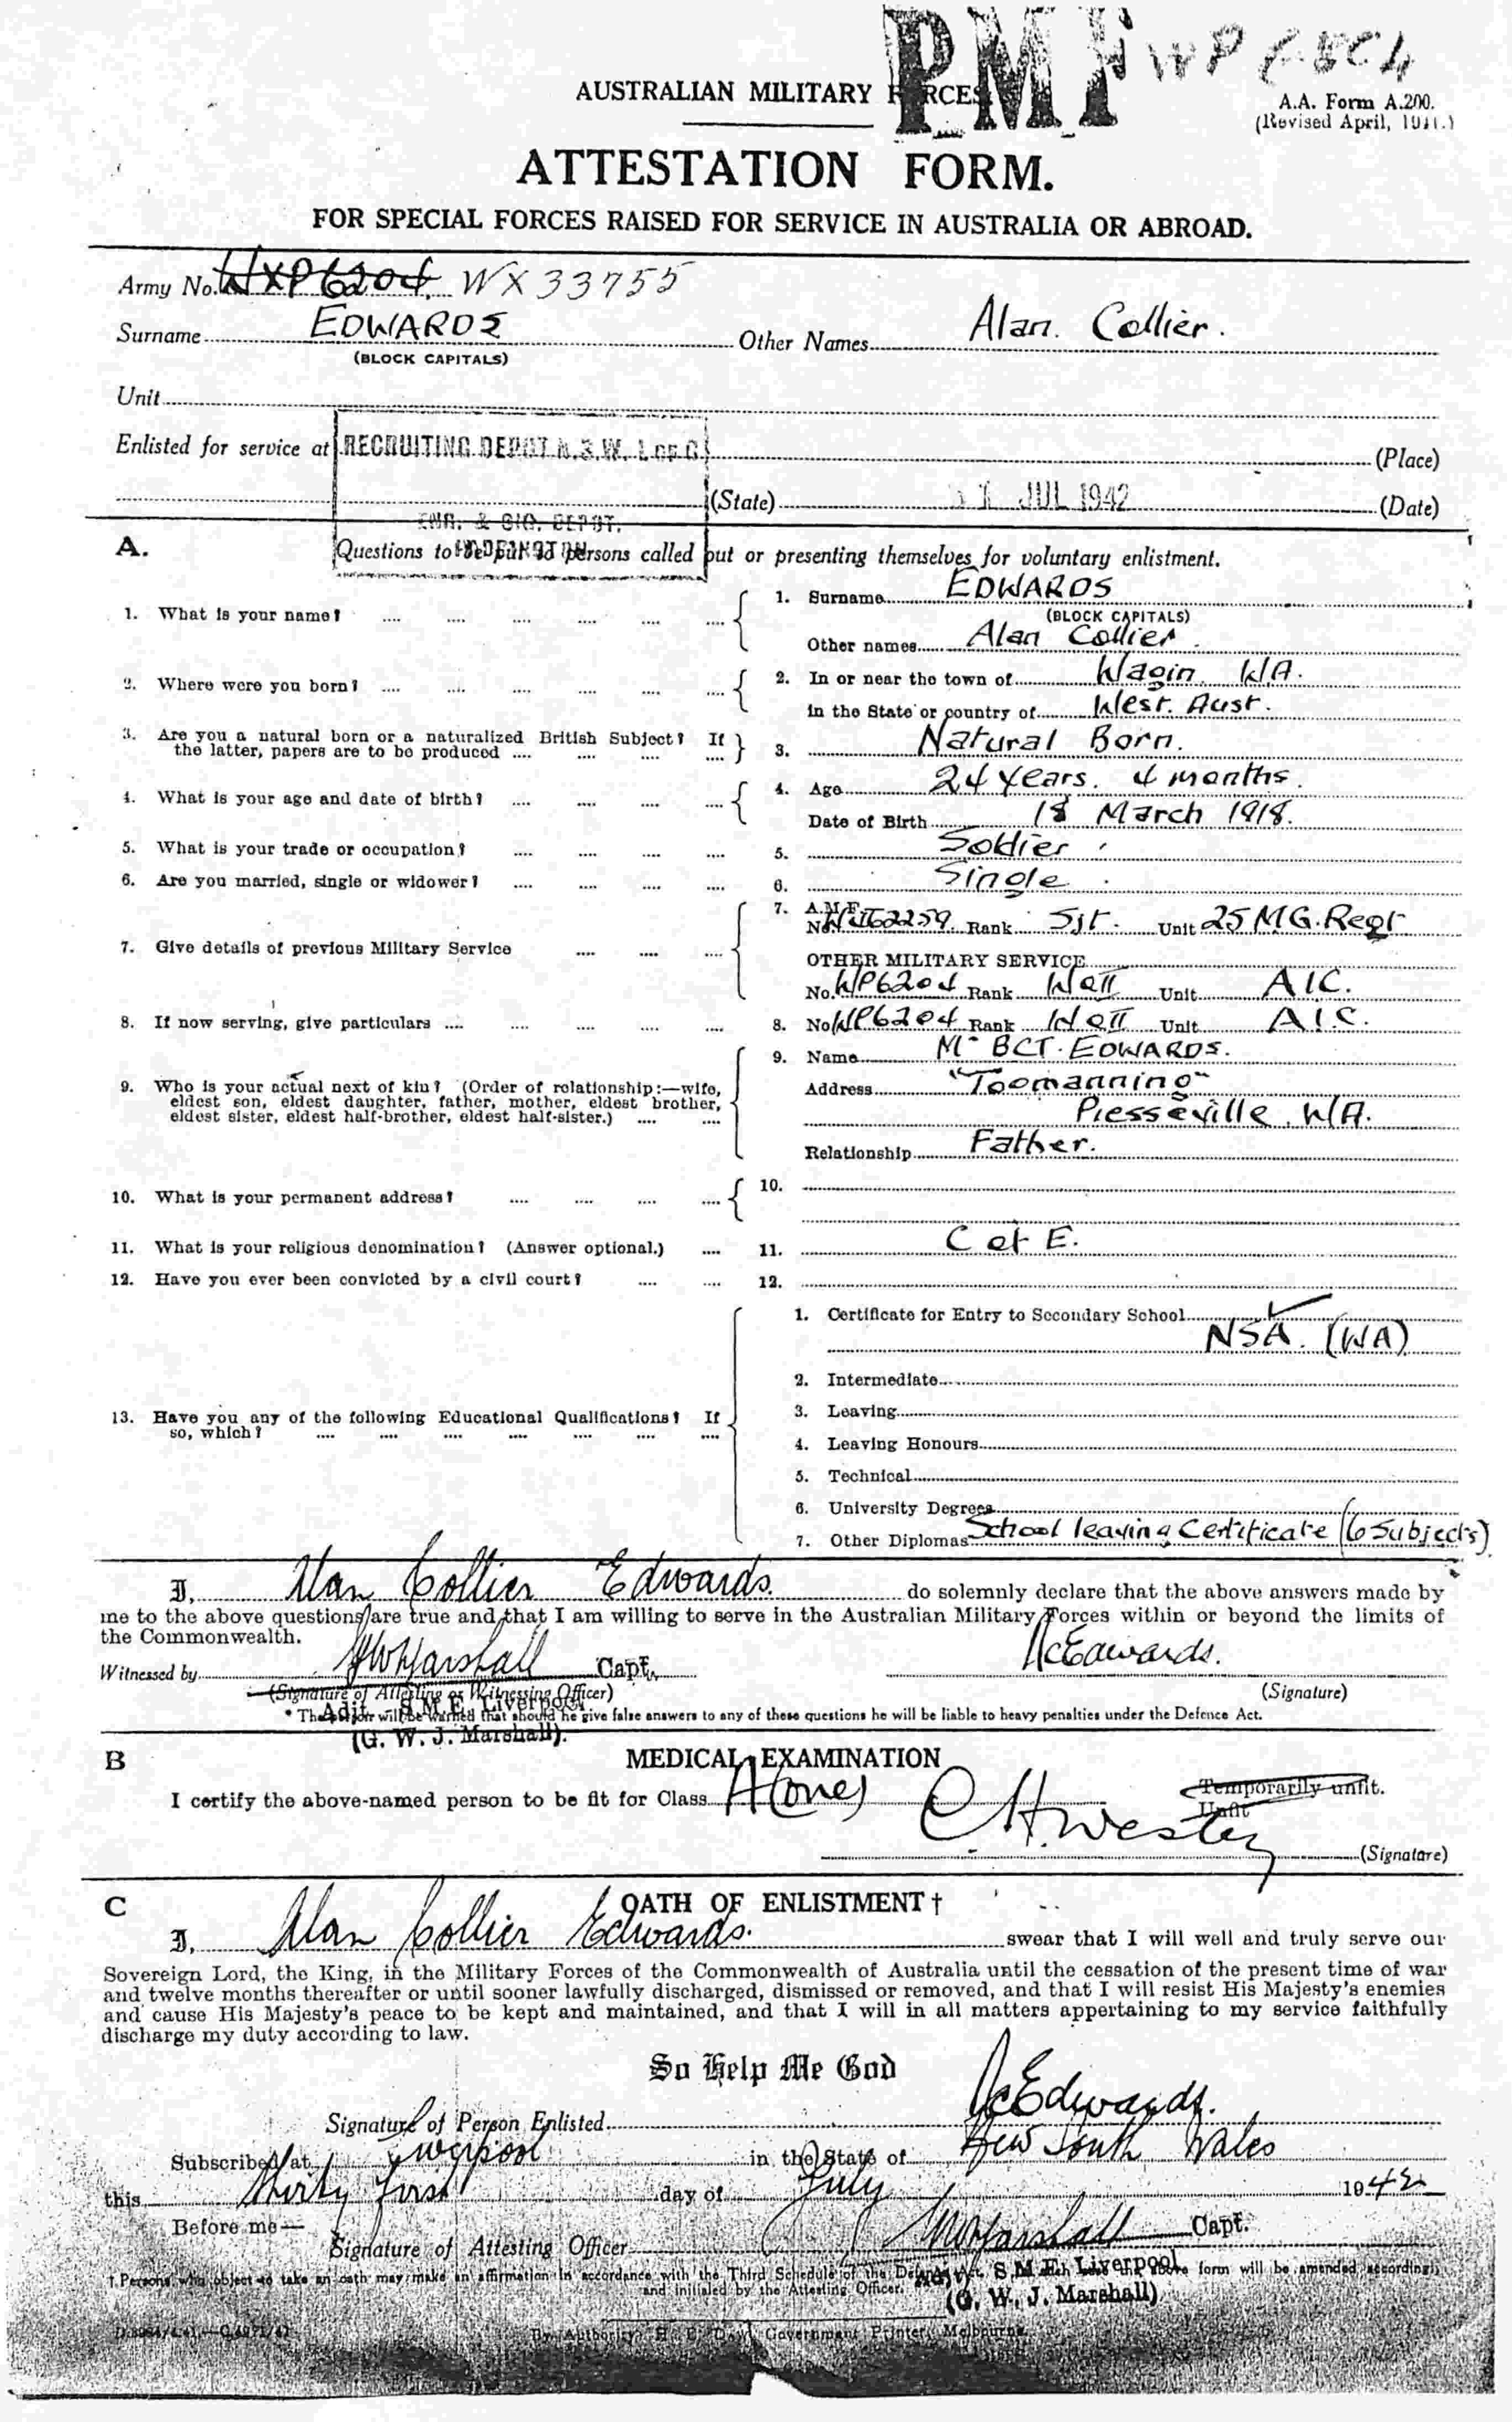 PMF WP6204
AUSTRALIAN MILITARY FORCES
A.A. Form A.200.
(Revised April, 1941.)
ATTESTATION FORM.
FOR SPECIAL FORCES RAISED FOR SERVICE IN AUSTRALIA OR ABROAD.
Army No. WXP6204. WX33755
Surname EDWARDS Other Names Alan. Collier.
(BLOCK CAPITALS)
Unit
Enlisted for service at RECRUITING DEPOT N.S.W. L OF C. (Place)
(State) 31 JUL 1942 (Date)
ENR. & DEPOT.
A. Questions to be put to persons called out or presenting themselves for voluntary enlistment.
1. What is your name? 1. Surname EDWARDS
(BLOCK CAPITALS)
Other names Alan Collier.
2. Where were you born? 2. In or near the town of Wagin. WA.
in the State or country of West. Aust.
3. Are you a natural born or a naturalized British Subject? If
the latter, papers are to be produced 3. Natural Born.
4. What is your age and date of birth? 4. Age 24 years. 4 months.
Date of Birth 18 March 1918.
5. What is your trade or occupation? 5. Soldier.
6. Are you married, single or widower? 6. Single.
7. Give details of previous Military Service 7. A.M.F. No. 62259. Rank Sjt. Unit 25 MG. Regt
OTHER MILITARY SERVICE
No. WP6204 Rank WOII Unit AIC.
8. If now serving, give particulars 8. No. WP6204 Rank WOII Unit A.I.C.
9. Who is your actual next of kin? (Order of relationship:—wife,
eldest son, eldest daughter, father, mother, eldest brother,
eldest sister, eldest half-brother, eldest half-sister.)
9. Name Mr BCT. EDWARDS.
Address "Toomanning"
Piesseville, WA.
Relationship Father.
10. What is your permanent address? 10.
11. What is your religious denomination? (Answer optional.) 11. C of E.
12. Have you ever been convicted by a civil court? 12.
13. Have you any of the following Educational Qualifications? If
so, which?
1. Certificate for Entry to Secondary School
NSA. (WA)
2. Intermediate
3. Leaving
4. Leaving Honours
5. Technical
6. University Degrees
7. Other Diplomas School leaving Certificate (6 Subjects)
I, Alan Collier Edwards. do solemnly declare that the above answers made by
me to the above questions are true and that I am willing to serve in the Australian Military Forces within or beyond the limits of
the Commonwealth.
Witnessed by GWJMarshall Capt. ACEdwards.
(Signature of Attesting or Witnessing Officer) (Signature)
Adjt. S.M.E. Liverpool
* The person will be warned that should he give false answers to any of these questions he will be liable to heavy penalties under the Defence Act.
(G. W. J. Marshall).
B MEDICAL EXAMINATION
I certify the above-named person to be fit for Class A (one) Temporarily unfit.
Unfit
(Signature)
C OATH OF ENLISTMENT †
I, Alan Collier Edwards. swear that I will well and truly serve our
Sovereign Lord, the King, in the Military Forces of the Commonwealth of Australia until the cessation of the present time of war
and twelve months thereafter or until sooner lawfully discharged, dismissed or removed, and that I will resist His Majesty's enemies
and cause His Majesty's peace to be kept and maintained, and that I will in all matters appertaining to my service faithfully
discharge my duty according to law.
So Help Me God
Signature of Person Enlisted ACEdwards.
Subscribed at Liverpool in the State of New South Wales
this thirty first day of July 1942
Before me—
Signature of Attesting Officer GWJMarshall Capt.
† Persons who object to take an oath may make an affirmation in accordance with the Third Schedule of the Defence Act. In such case the above form will be amended accordingly
and initialed by the Attesting Officer.
Adjt. S.M.E. Liverpool
(G. W. J. Marshall)
By Authority: Government Printer, Melbourne.